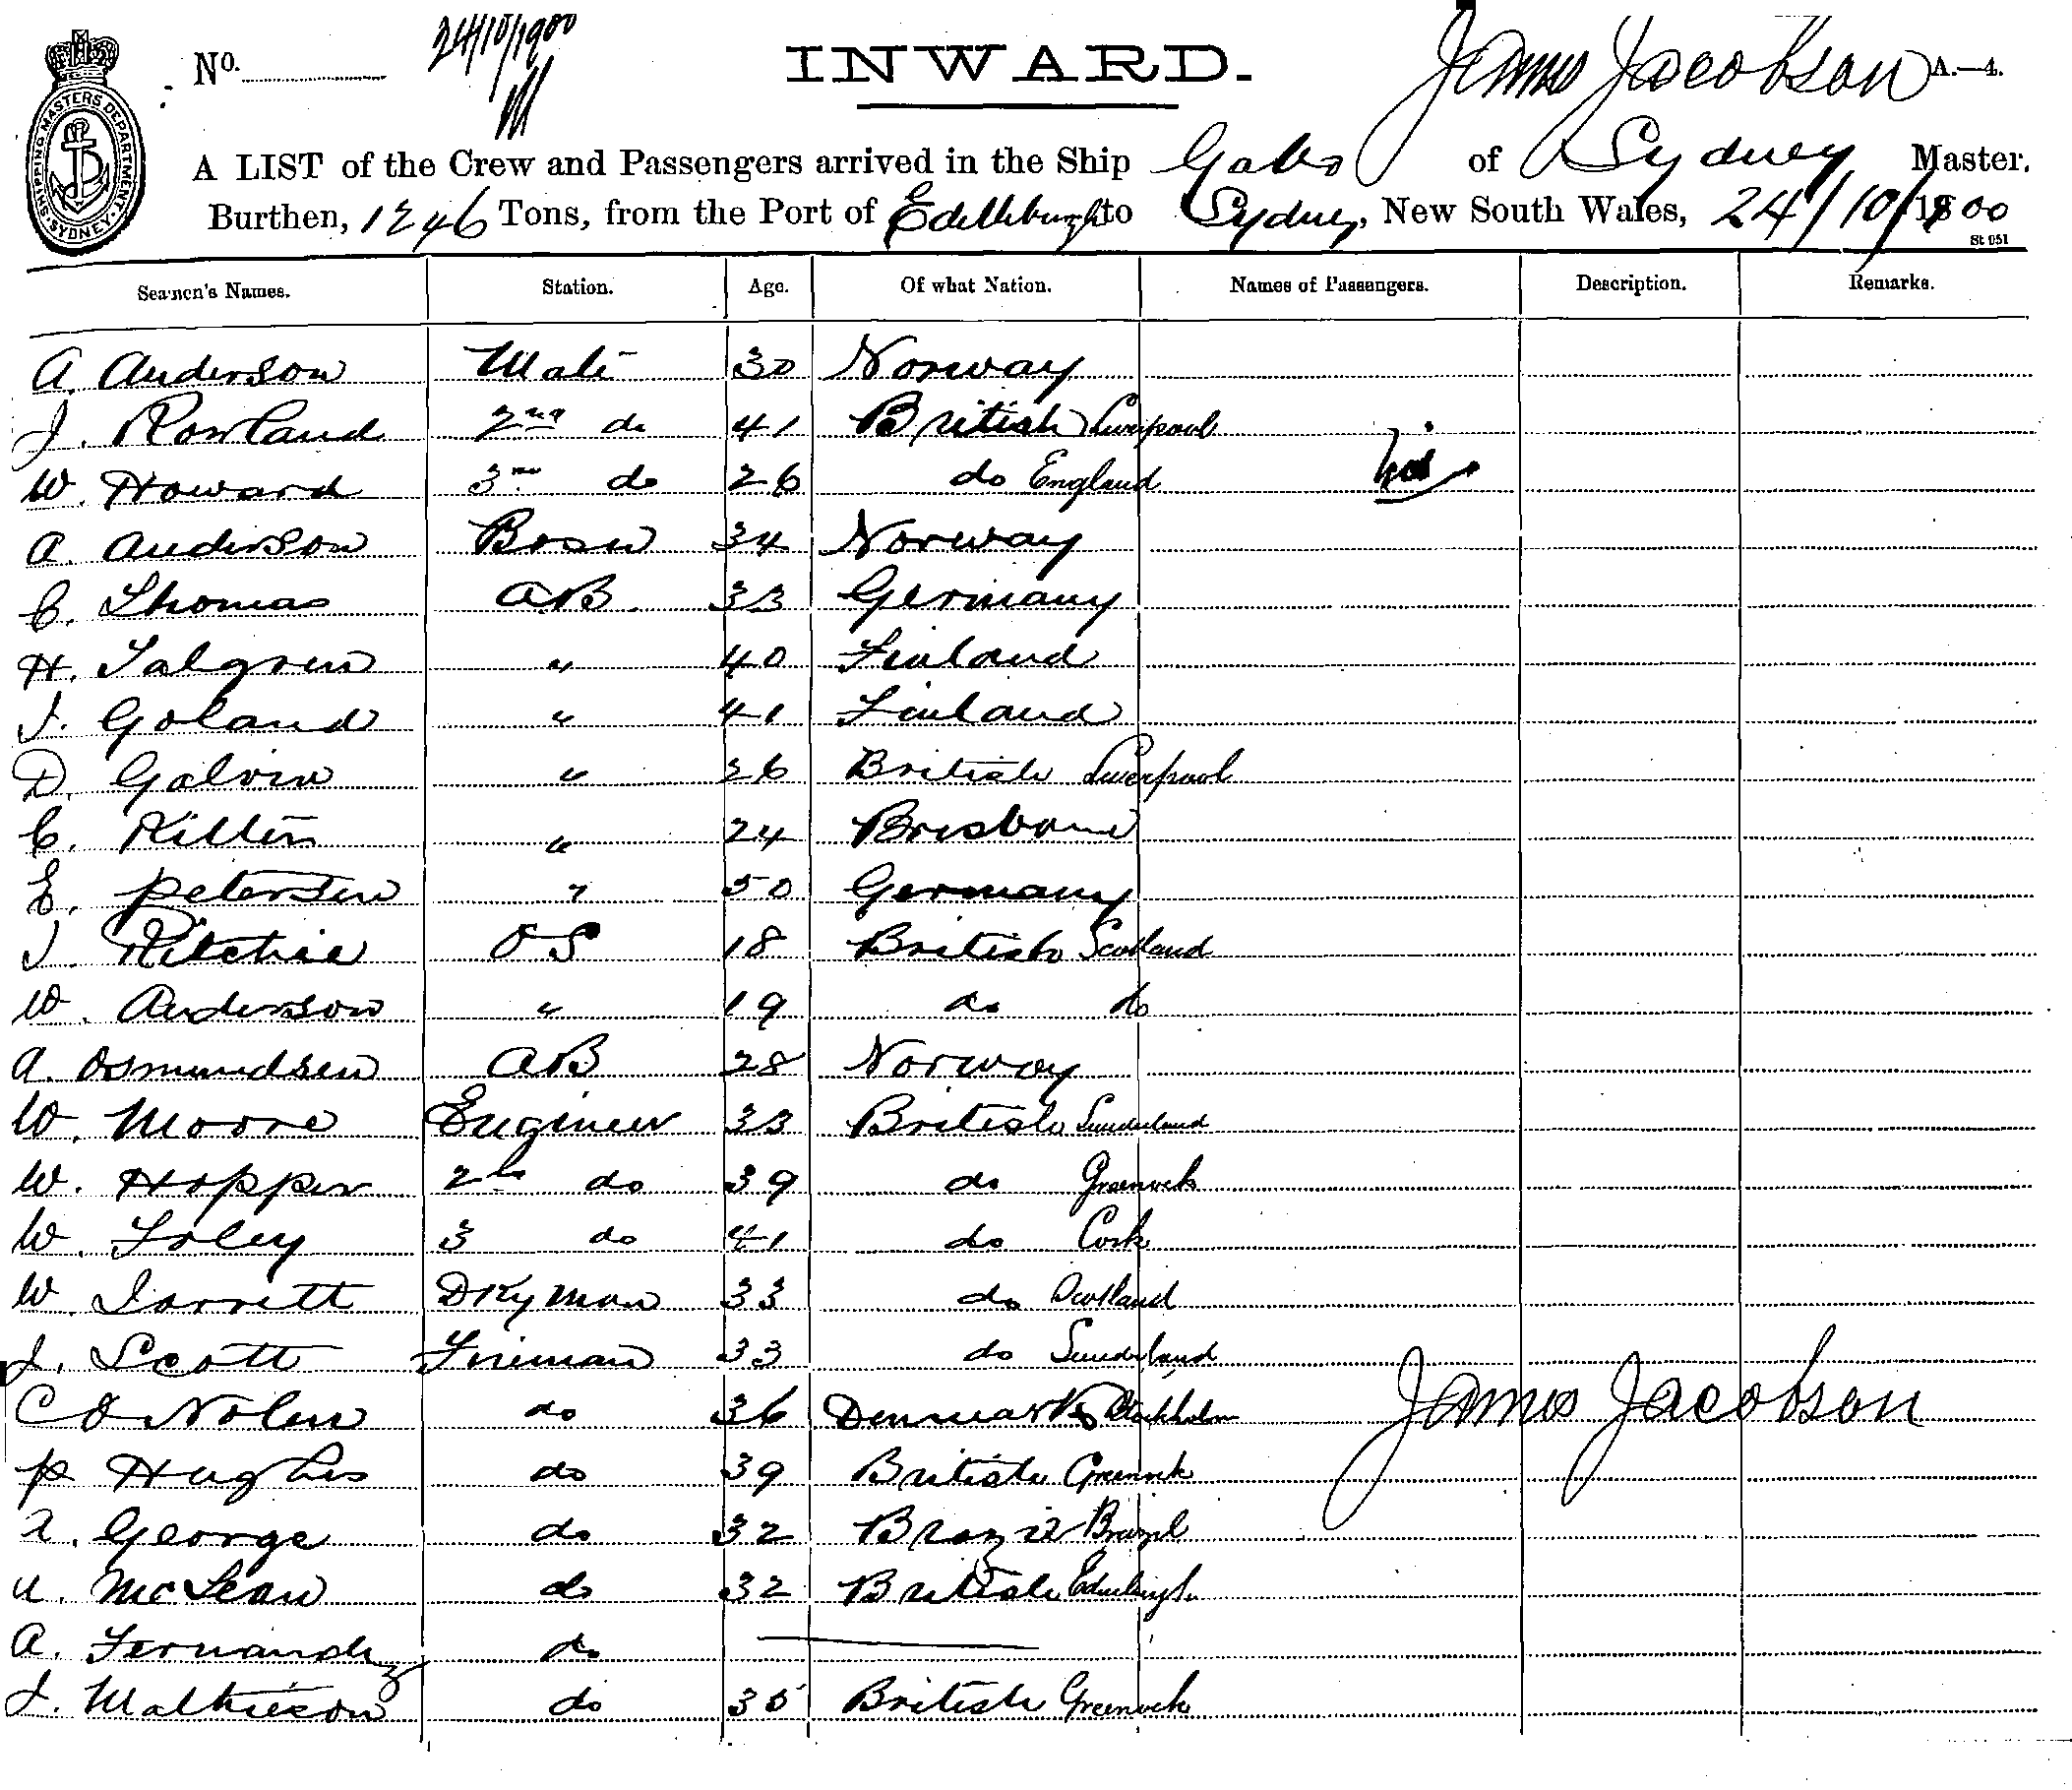 No. 24/10/1900 INWARD. James Jacobson A.—4.
SHIPPING MASTERS DEPARTMENT. SYDNEY.
A LIST of the Crew and Passengers arrived in the Ship Gabo of Sydney Master.
Burthen, 1246 Tons, from the Port of to Sydney, New South Wales, 24/10/1900
St 951
Seamen's Names. Station. Age. Of what Nation. Names of Passengers. Description. Remarks.
A. Anderson Mate 30 Norway
J. Rowland 2nd do 41 British Liverpool
W. Howard 3rd do 26 do England
A. Anderson Bosn 34 Norway
C. Thomas AB 33 Germany
H. Talgren " 40 Finland
J. Goland " 41 Finland
D. Galvin " 26 British Liverpool
C. " 24 Brisbane
E. Petersen " 50 Germany
J. Ritchie OS 18 British Scotland
W. Anderson " 19 do do
A. Osmundsen AB 28 Norway
W. Moore Engineer 33 British Sunderland
W. Hopper 2nd do 39 do Greenock
W. Foley 3 do 41 do Cork
W. Jarrett DKyman 33 do Scotland
J. Scott Fireman 33 do Sunderland
C O Nolen do 36 Denmark Stockholm James Jacobson
P Hughes do 39 British Greenock
A. George do 32 Brazil Brazil
A. McLean do 32 British Edinburgh
A. Fernandez do
J. Mathieson do 35 British Greenock